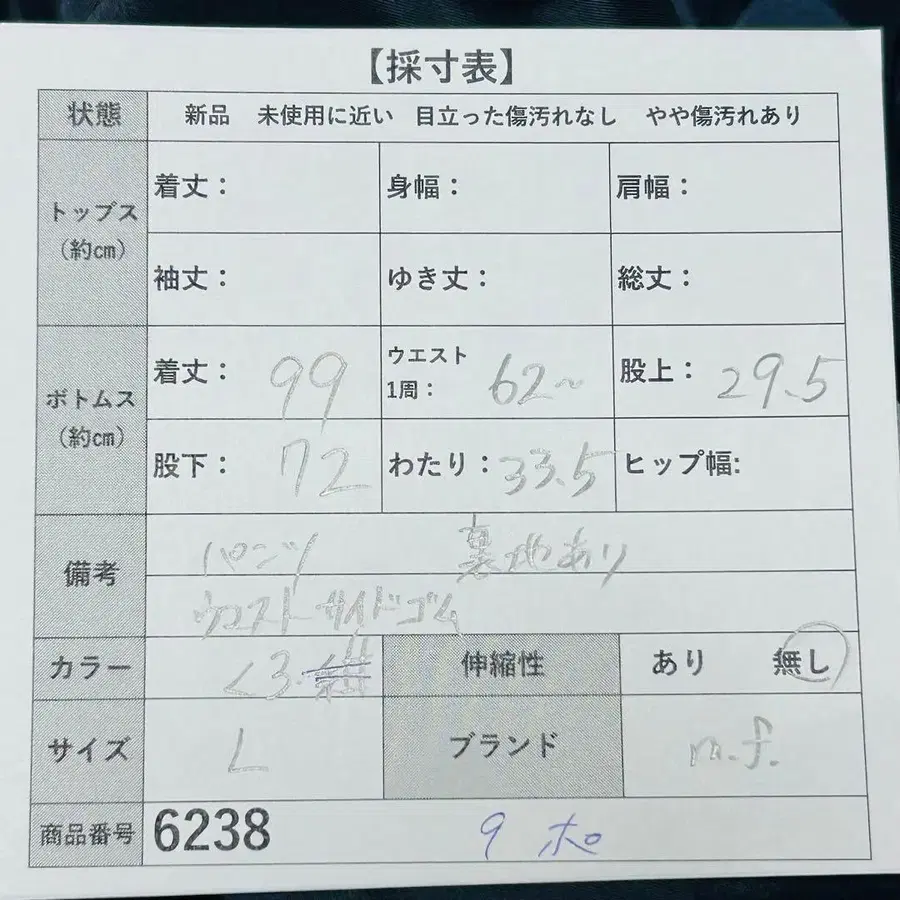 【採寸表】
状態 新品 未使用に近い 目立った傷汚れなし やや傷汚れあり
トップス (約cm) 着丈： 身幅： 肩幅：
袖丈： ゆき丈： 総丈：
ボトムス (約cm) 着丈： 99 ウエスト 1周： 62~ 股上： 29.5
股下： 72 わたり： 33.5 ヒップ幅:
備考 パンツ 裏地あり
ウエストサイドゴム
カラー くろ 伸縮性 あり 無し
サイズ L ブランド m.f.
商品番号 6238 9 ホ